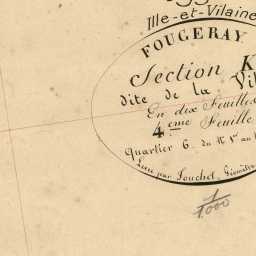 Ille-et-Vilaine
FOUGERAY
Section K
dite de la Vil
En dix Feuilles
4eme Feuille
Quartier 6. du N° 1er au
Levé par Louchel, Géomètre
1/1000